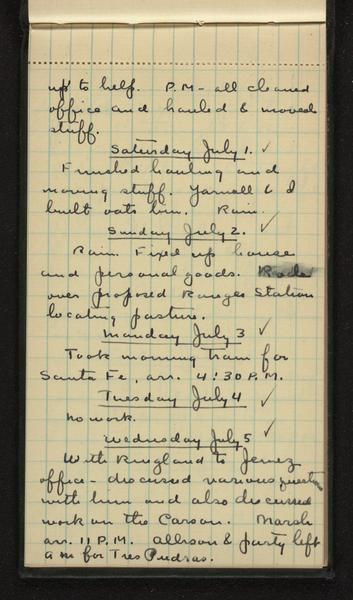 up to help. P.M - all cleaned
office and hauled & moved
stuff.
Saturday July 1. ✓
Finished hauling and
moving stuff. Yarnell & I
built oats bin. Rain.
Sunday July 2. ✓
Rain. Fixed up house
and personal goods. Rode
over proposed Ranger Station
locating pasture.
Monday July 3 ✓
Took morning train for
Santa Fe, arr. 4:30 P.M.
Tuesday July 4 ✓
No work.
Wednesday July 5 ✓
With Ringland to Jemez
office - discused various questions
with him and also discused
work on the Carson. Marsh
arr. 11 P.M. Allison & party left
a m for Tres Piedras.